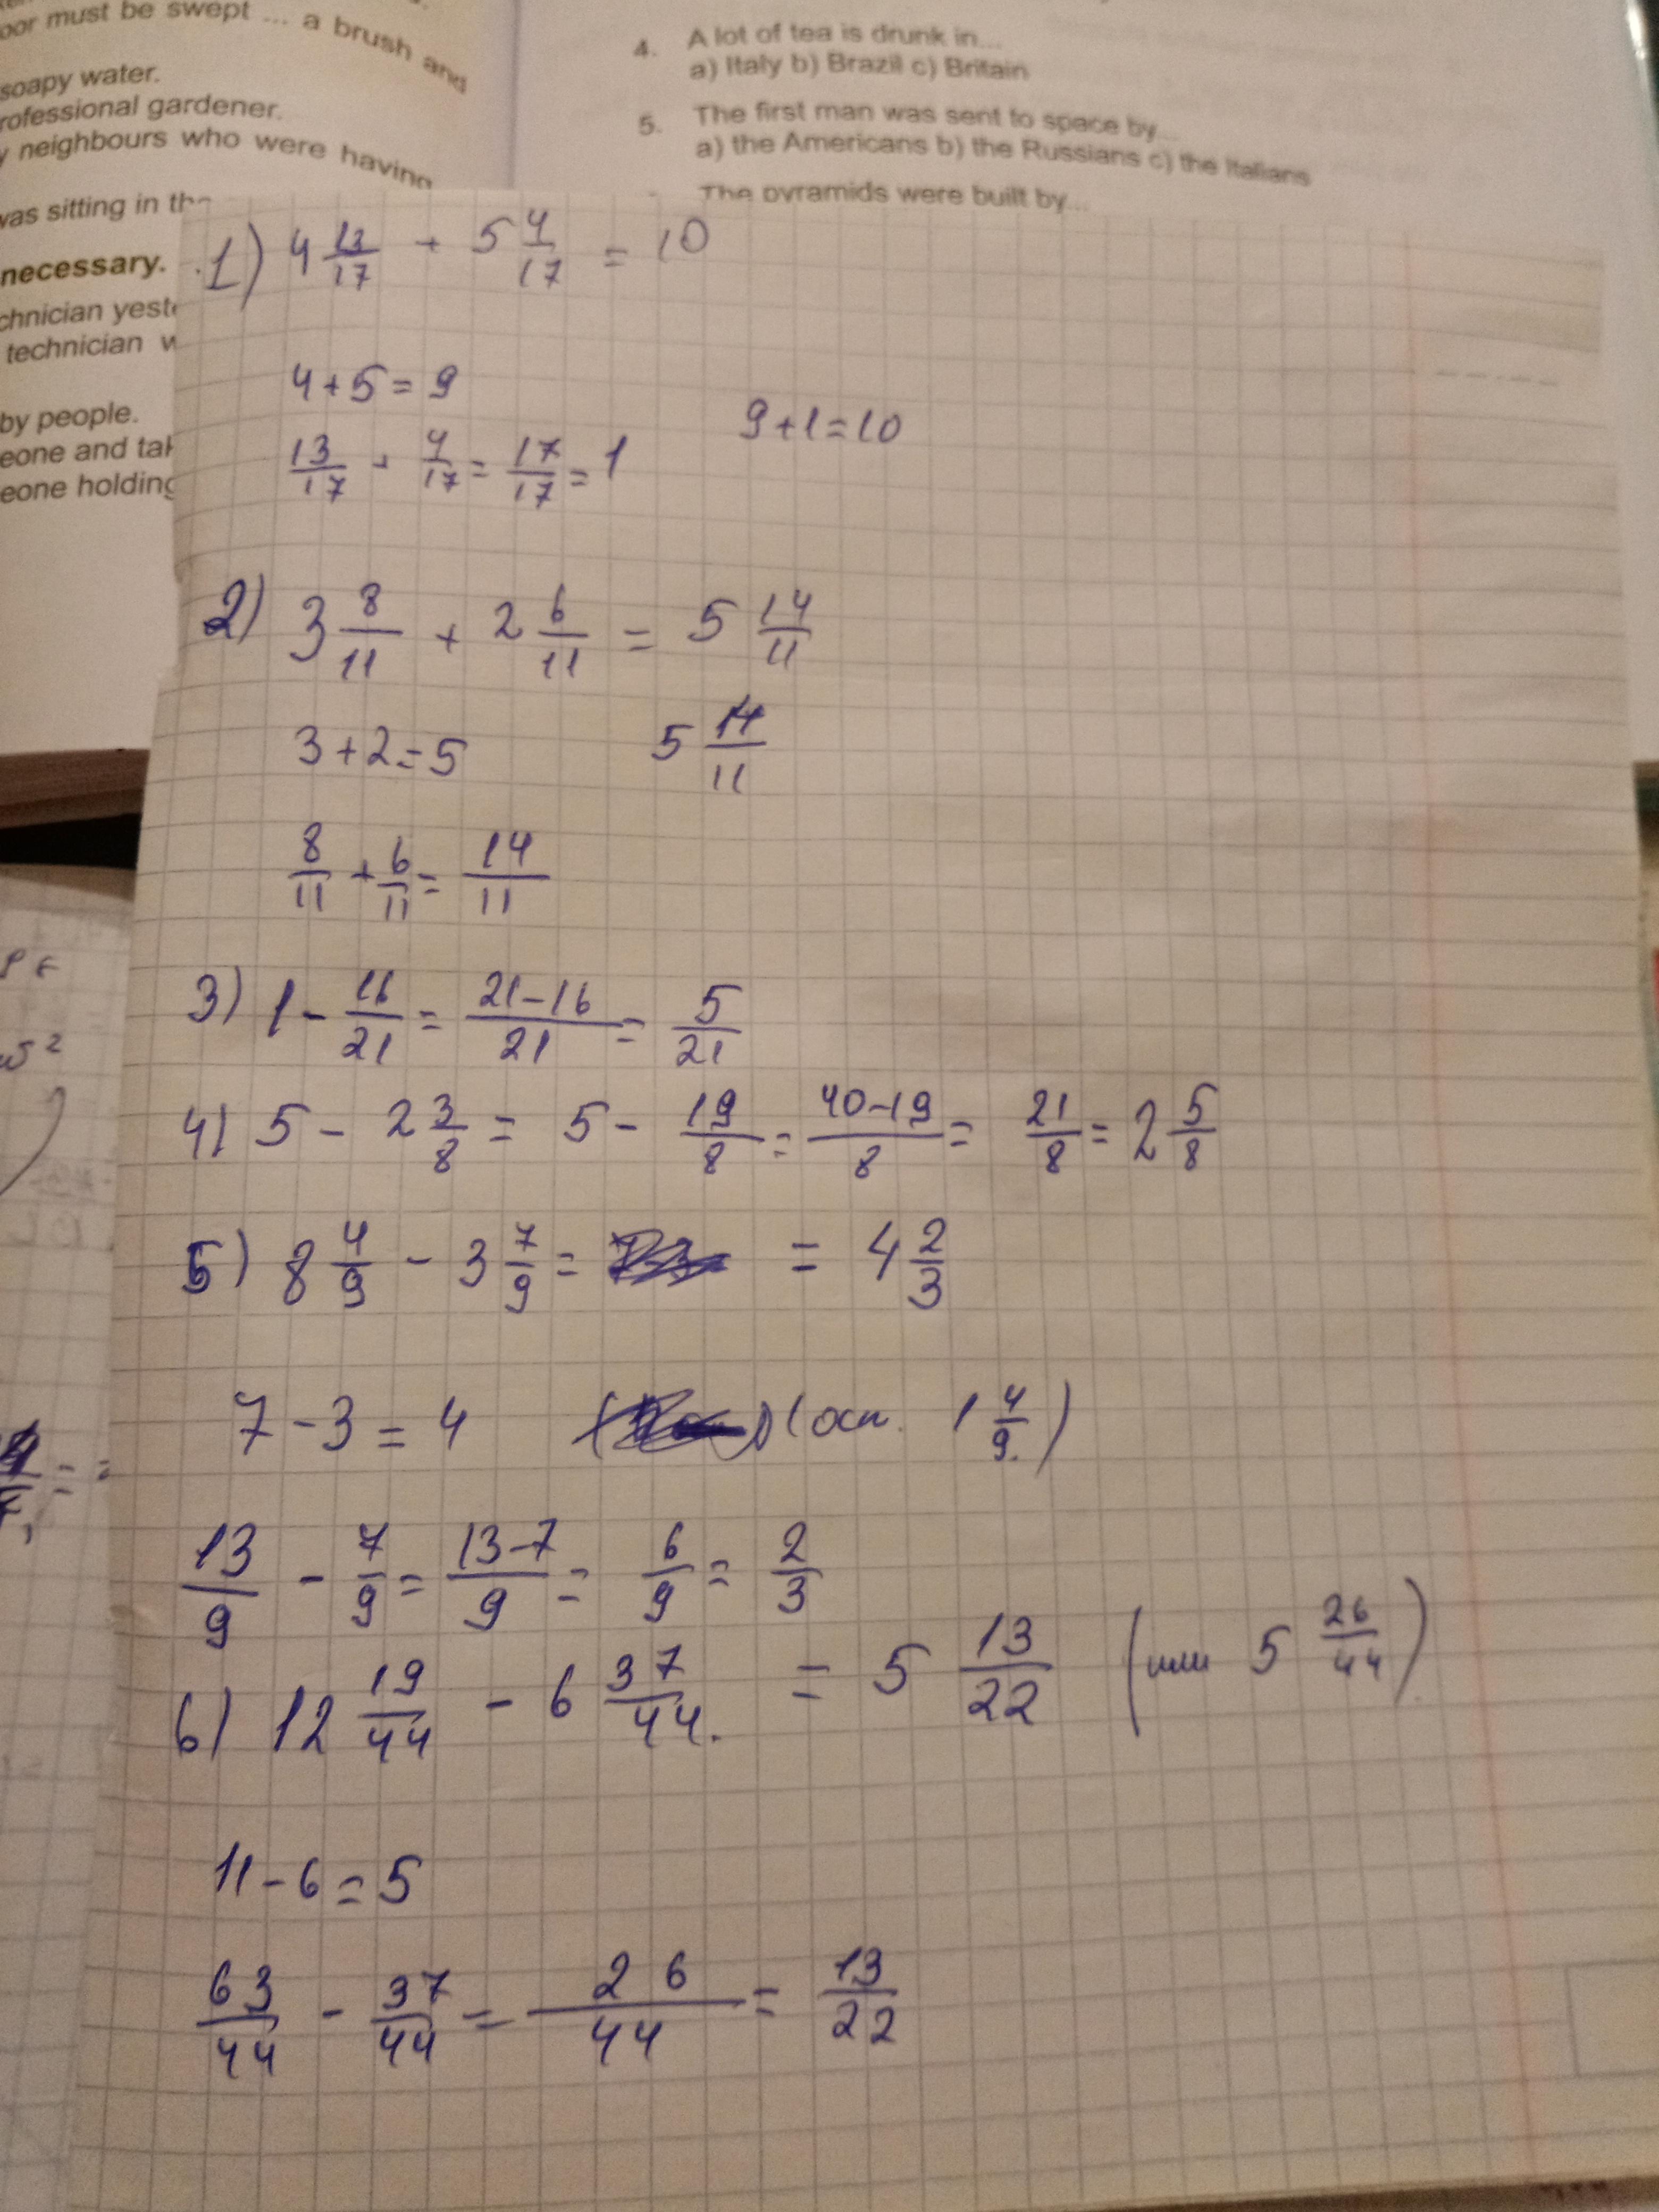 oor must be swept ... a brush and
soapy water.
rofessional gardener.
neighbours who were having
was sitting in the
necessary.
chnician yeste
technician w
by people.
eone and tak
eone holding
4. A lot of tea is drunk in...
a) Italy b) Brazil c) Britain
5. The first man was sent to space by...
a) the Americans b) the Russians c) the Italians
The pyramids were built by...
1) 4 13/17 + 5 4/17 = 10
4+5=9
9+1=10
13/17 + 4/17 = 17/17 = 1
2) 3 8/11 + 2 6/11 = 5 14/11
3+2=5
5 14/11
8/11 + 6/11 = 14/11
3) 1 - 16/21 = 21-16/21 = 5/21
4) 5 - 2 3/8 = 5 - 19/8 = 40-19/8 = 21/8 = 2 5/8
5) 8 4/9 - 3 7/9 = = 4 2/3
7-3=4 (осн. 1 4/9.)
13/9 - 7/9 = 13-7/9 = 6/9 = 2/3
6) 12 19/44 - 6 37/44. = 5 13/22 (или 5 26/44)
11-6=5
63/44 - 37/44 = 26/44 = 13/22